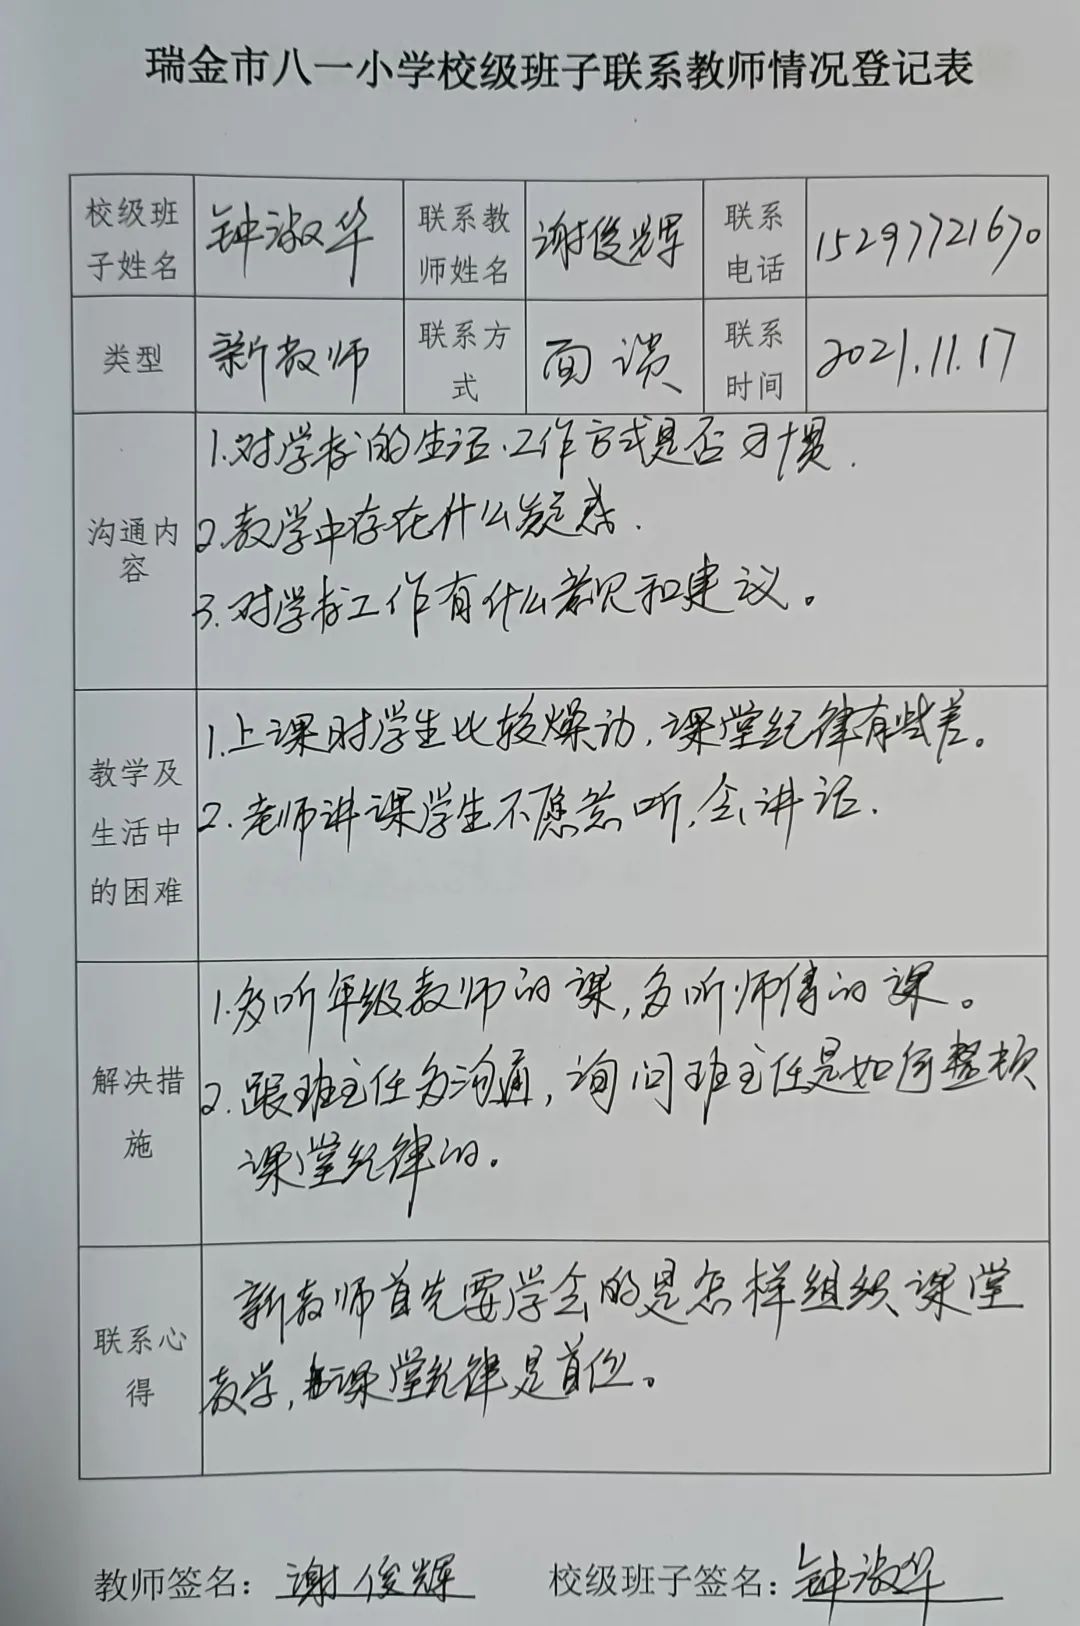 瑞金市八一小学校级班子联系教师情况登记表
校级班子姓名 钟淑华 联系教师姓名 谢俊辉 联系电话 15297721670
类型 新教师 联系方式 面谈 联系时间 2021.11.17
沟通内容
1.对学校的生活、工作方式是否习惯.
2.教学中存在什么疑惑.
3.对学校工作有什么意见和建议。
教学及生活中的困难
1.上课时学生比较燥动,课堂纪律有些差。
2.老师讲课学生不愿意听,会讲话.
解决措施
1.多听年级教师的课,多听师傅的课。
2.跟班主任多沟通,询问班主任是如何整顿
课堂纪律的。
联系心得
新教师首先要学会的是怎样组织课堂
教学,课堂纪律是首位。
教师签名: 谢俊辉 校级班子签名: 钟淑华